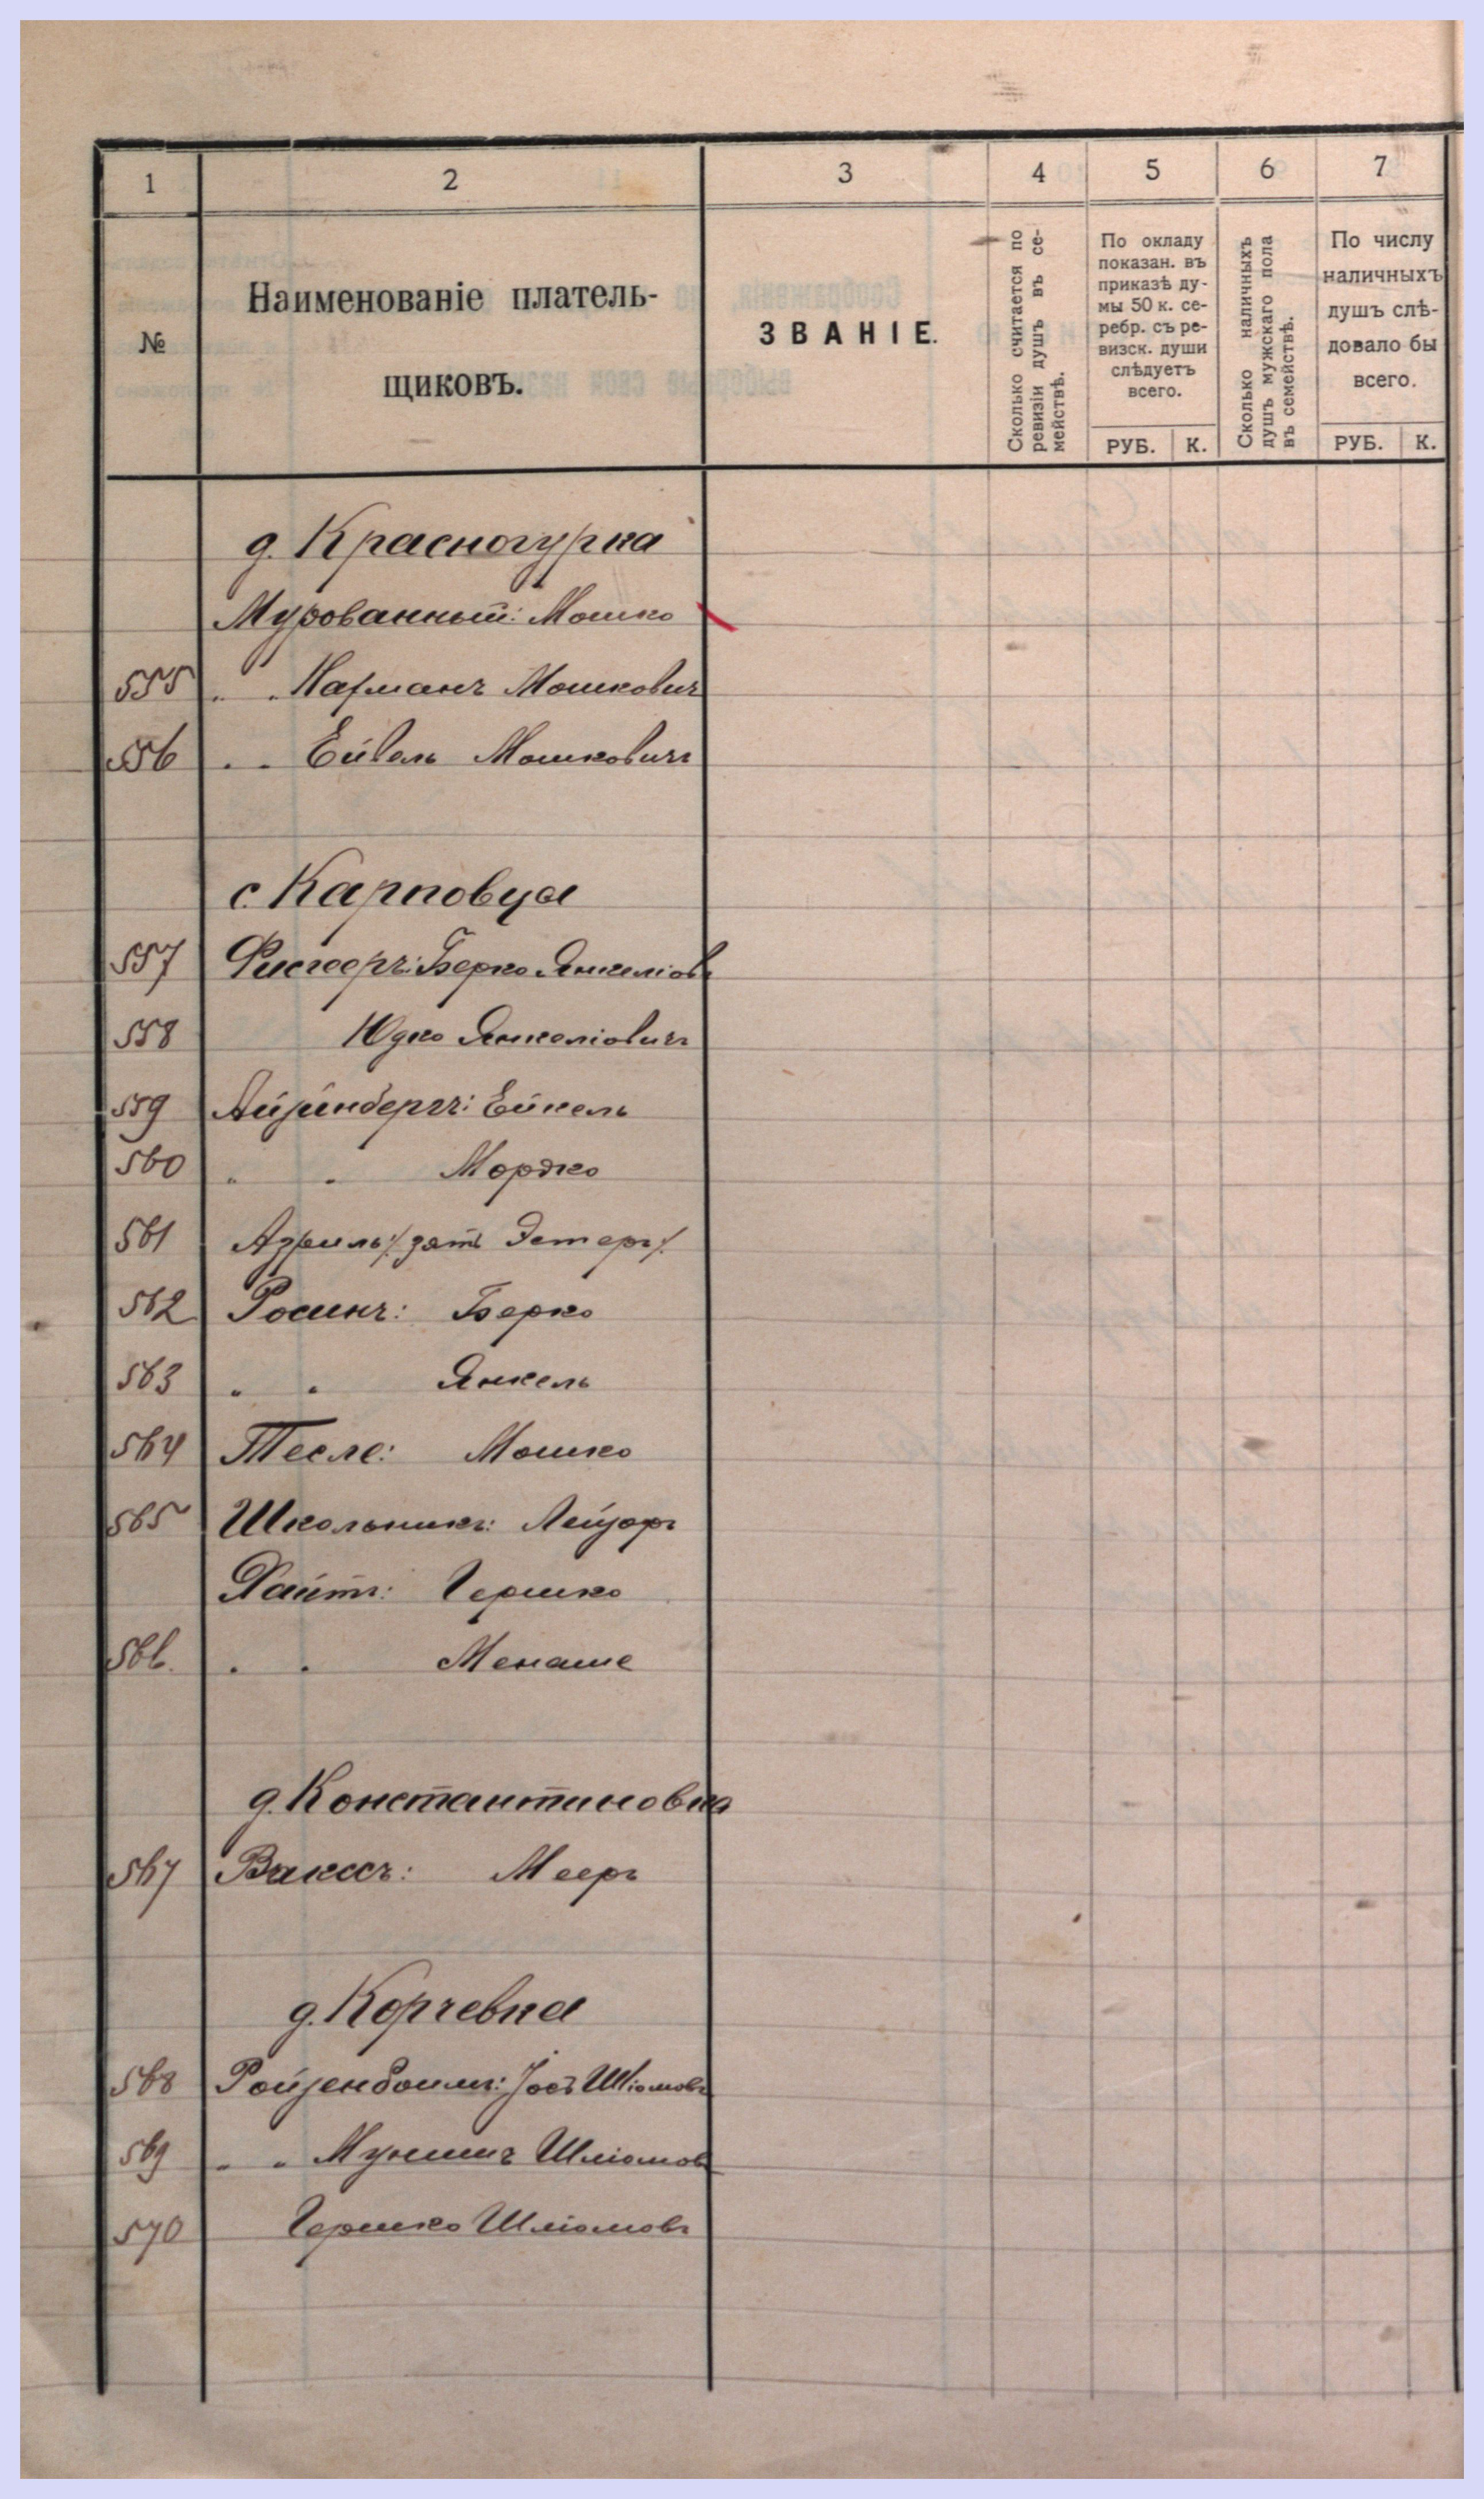 1 2 3 4 5 6 7
№
Наименованіе платель-
щиковъ.
ЗВАНІЕ.
Сколько считается по
ревизіи душъ въ се-
мействѣ.
По окладу
показан. въ
приказѣ ду-
мы 50 к. се-
ребр. съ ре-
визск. души
слѣдуетъ
всего.
РУБ. К.
Сколько наличныхъ
душъ мужскаго пола
въ семействѣ.
По числу
наличныхъ
душъ слѣ-
довало бы
всего.
РУБ. К.
д. Красногурка
Мурованный: Мошко
555 " " Нафманъ Мошкович
556 " " Ейвель Мошковичъ
с. Карповца
557 Берко Янкеліов
558 Юдко Янкеліовичъ
559 Айзинбергъ: Ейкель
560 " " Мордко
561 Азриль /: зять Эстеръ /.
562 Росинъ: Берко
563 " " Янкель
564 Тесле: Мошко
565 Школьникъ: Лейзоръ
Хаитъ: Гершко
566. " " Менаше
д. Константиновка
567 Ваксъ: Мееръ
д. Корчевка
568 Ройзенбоимъ: Іосъ Шліомовъ
569 " " Мунишъ Шліомов
570 Гершко Шліомовъ